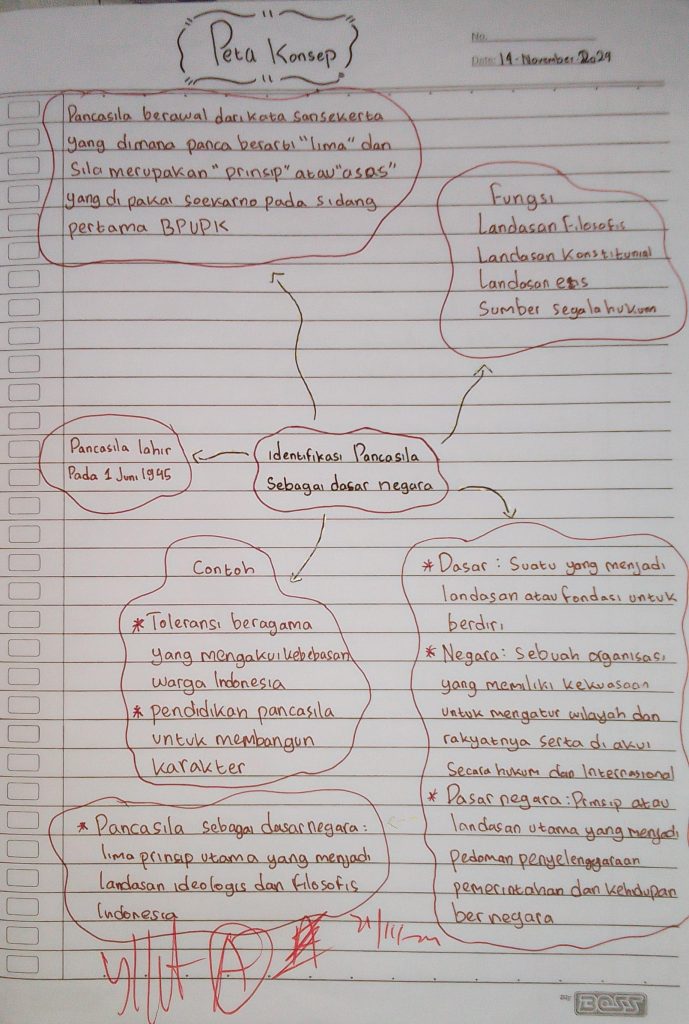 Peta Konsep
No.
Date: 14-November 2024
Pancasila berawal dari kata sansekerta
yang dimana panca berarti "lima" dan
Sila merupakan "prinsip" atau "asas"
yang di pakai soekarno pada sidang
pertama BPUPK
Fungsi
Landasan Filosofis
Landasan Konstitunial
Landasan etis
Sumber segala hukum
Pancasila lahir
Pada 1 Juni 1945
identifikasi Pancasila
Sebagai dasar negara
Contoh
* Toleransi beragama
yang mengakui kebebasan
warga Indonesia
* pendidikan pancasila
untuk membangun
karakter
* Dasar : Suatu yang menjadi
landasan atau fondasi untuk
berdiri
* Negara : Sebuah organisasi
yang memiliki kekuasaan
untuk mengatur wilayah dan
rakyatnya serta di akui
Secara hukum dan Internasional
* Dasar negara : Prinsip atau
landasan utama yang menjadi
pedoman penyelenggaraan
pemerintahan dan kehidupan
bernegara
* Pancasila sebagai dasar negara :
lima prinsip utama yang menjadi
landasan ideologis dan filosofis
Indonesia
A
BOSS